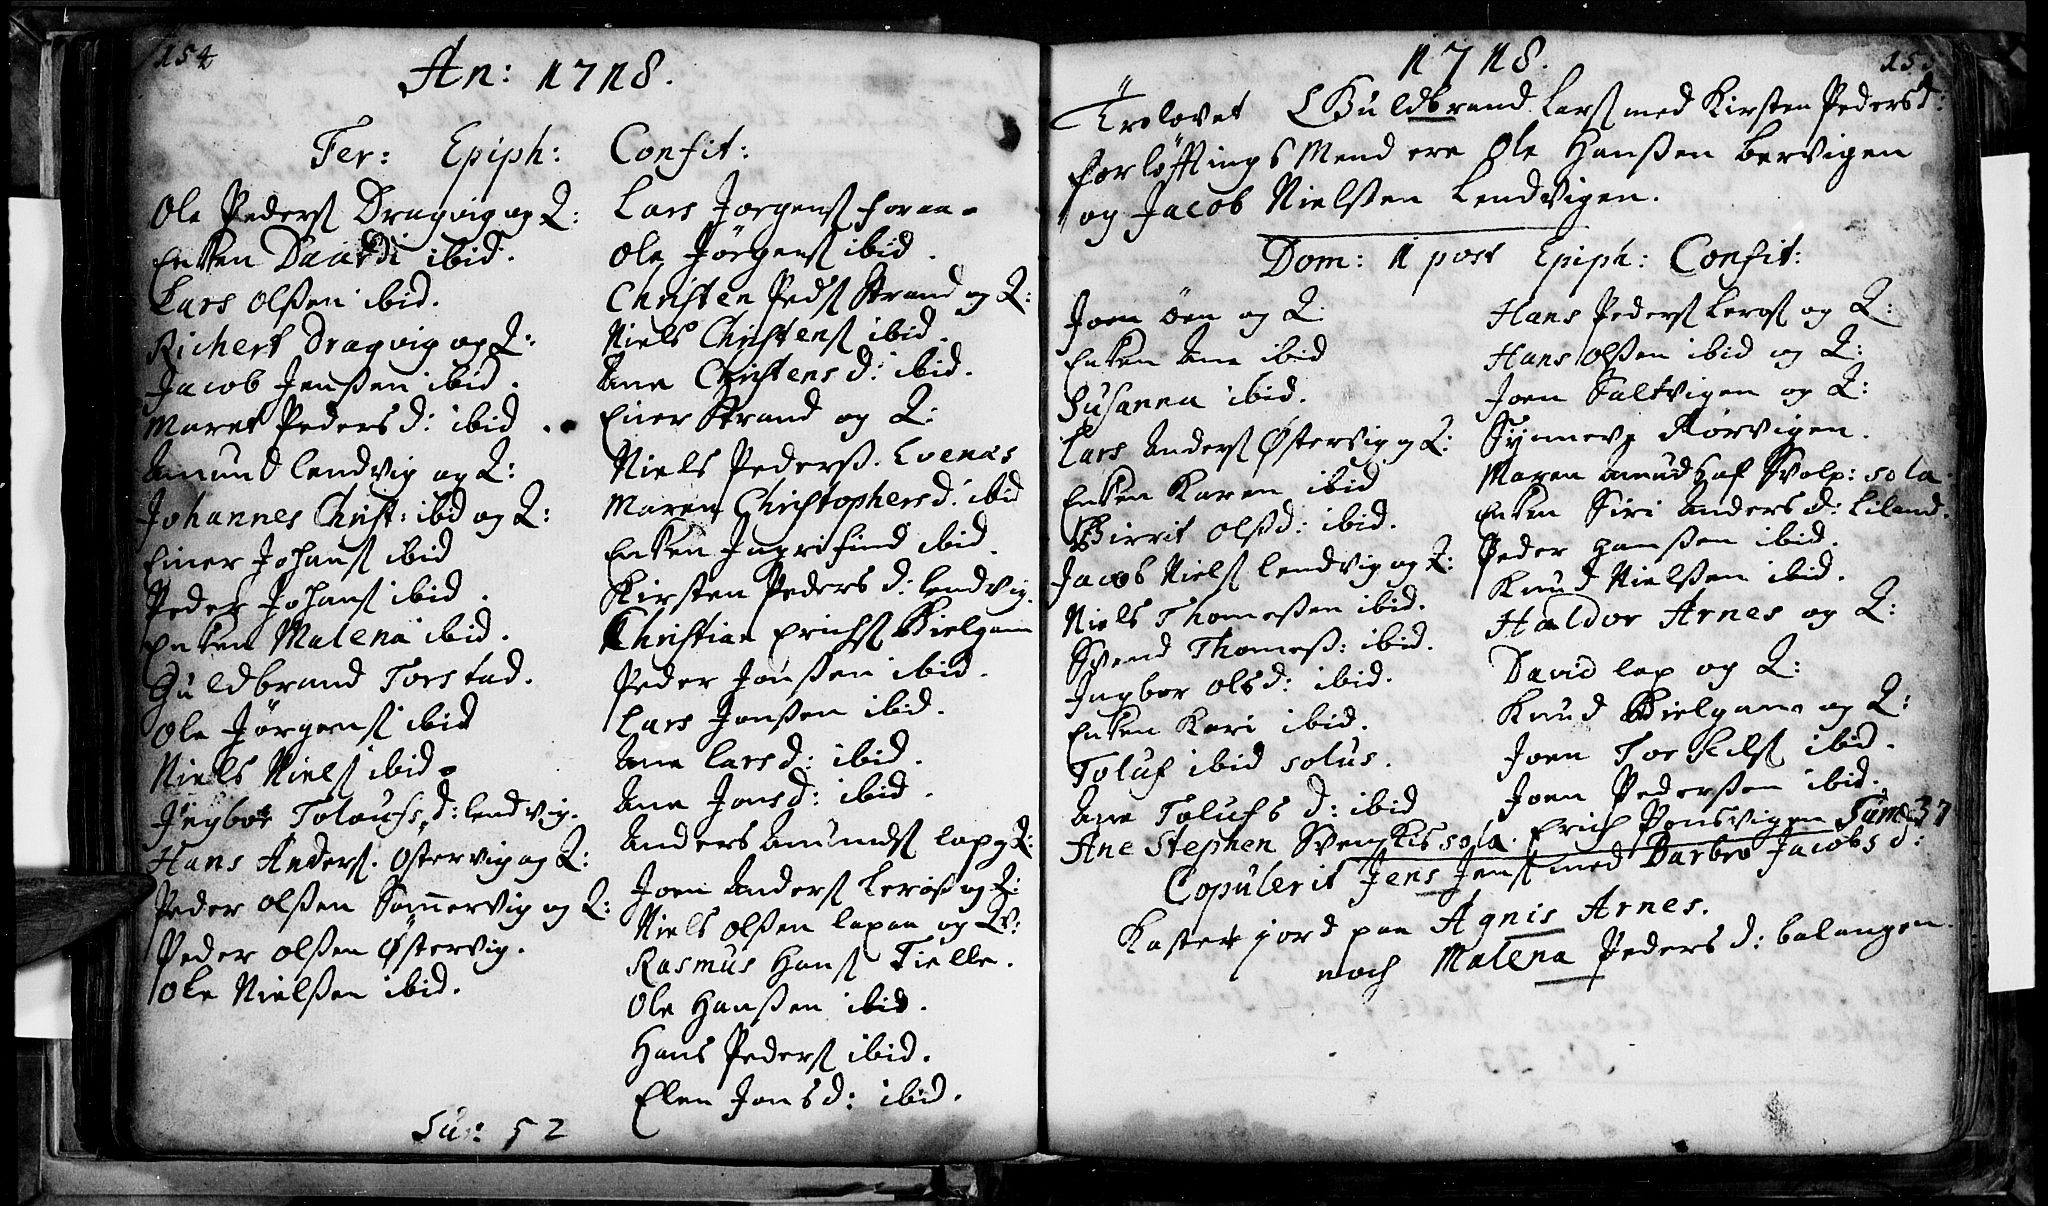 154
An: 1718.
Fer: Epiph: Confit:
Ole Peders Dragvig og Q:
Enken Daardi ibid.
Lars Olßen ibid.
Richert Dragvig og Q:
Jacob Jenßen ibid.
Maret Peders d: ibid
Amund lendvig og Q:
Johannes Christ: ibd og Q:
Einer Johans ibid
Peder Johans ibid.
Enken Malena ibid.
Guldbrand Torstad.
Ole Jørgens ibid
Niels Niels ibid.
Ingbor Tolaufs d: lendvig.
Hans Anders. Ostervig og Q:
Peder Olßen Sommervig og Q:
Peder Olßen Østervig.
Ole Nielßen ibid.
Lars Jørgens foraa.
Ole Jørgens ibid.
Christen Peds Strand og Q:
Niels Christens ibid.
Ane Christens d: ibid.
Einer Strand og Q:
Niels Peders. Evenæs
Maren Christophers d: ibid
Enken Ingri find ibid.
Kirsten Peders d: lendvig.
Christian Erichs Bielgam
Peder Jonßen ibid.
Lars Jonßen ibid.
Ane Lars d: ibid.
Ane Jons d: ibid.
Anders Amunds lap og Q:
Joen Anders Lerøs og Q:
Niels Olßen lapaa og Qv:
Rasmus Hans Tielle.
Ole Hanßen ibid.
Hans Peders ibid.
Elen Jons d: ibid.
Sum: 52
1718.
155
Trolovet Guldbrand Lars med Kirsten Peders d:
forløftings Mend ere Ole Hanßen Bervigen
og Jacob Nielßen Lendvigen.
Dom: 1 post Epiph: Confit:
Joen Øen og Q
Enken Ane ibid
Susanna ibid.
Lars Anders Østervig og Q:
Enken Karen ibid
Birrit Olsd: ibid.
Jacob Niels lendvig og Q:
Niels Thomeßen ibid.
Svend Thomeß: ibid.
Ingbor Olsd: ibid.
Enken Kari ibid.
Toluf ibid solus.
Ane Tolufs d: ibid
Ane Stephen Svenskis sola.
Hans Peders Lerøs og Q:
Hans Olßen ibid og Q:
Joen Saltvigen og Q:
Synneve Rørvigen.
Maren Amuds af Svolp: sola.
Enken Siri Anders d: Liland.
Peder Hanßen ibid.
Knud Nielßen ibid.
Haldor Arnes og Q:
David lap og Q:
Knud Bielgam og Q:
Joen Torkils ibid.
Joen Pederßen ibid.
Erich Ponsvigen Sum 37
Copulerit Jens Jens med Barbro Jacobs d:
Kastet jord paa Agnis Arnes.
noch Malena Peders d: balangen.